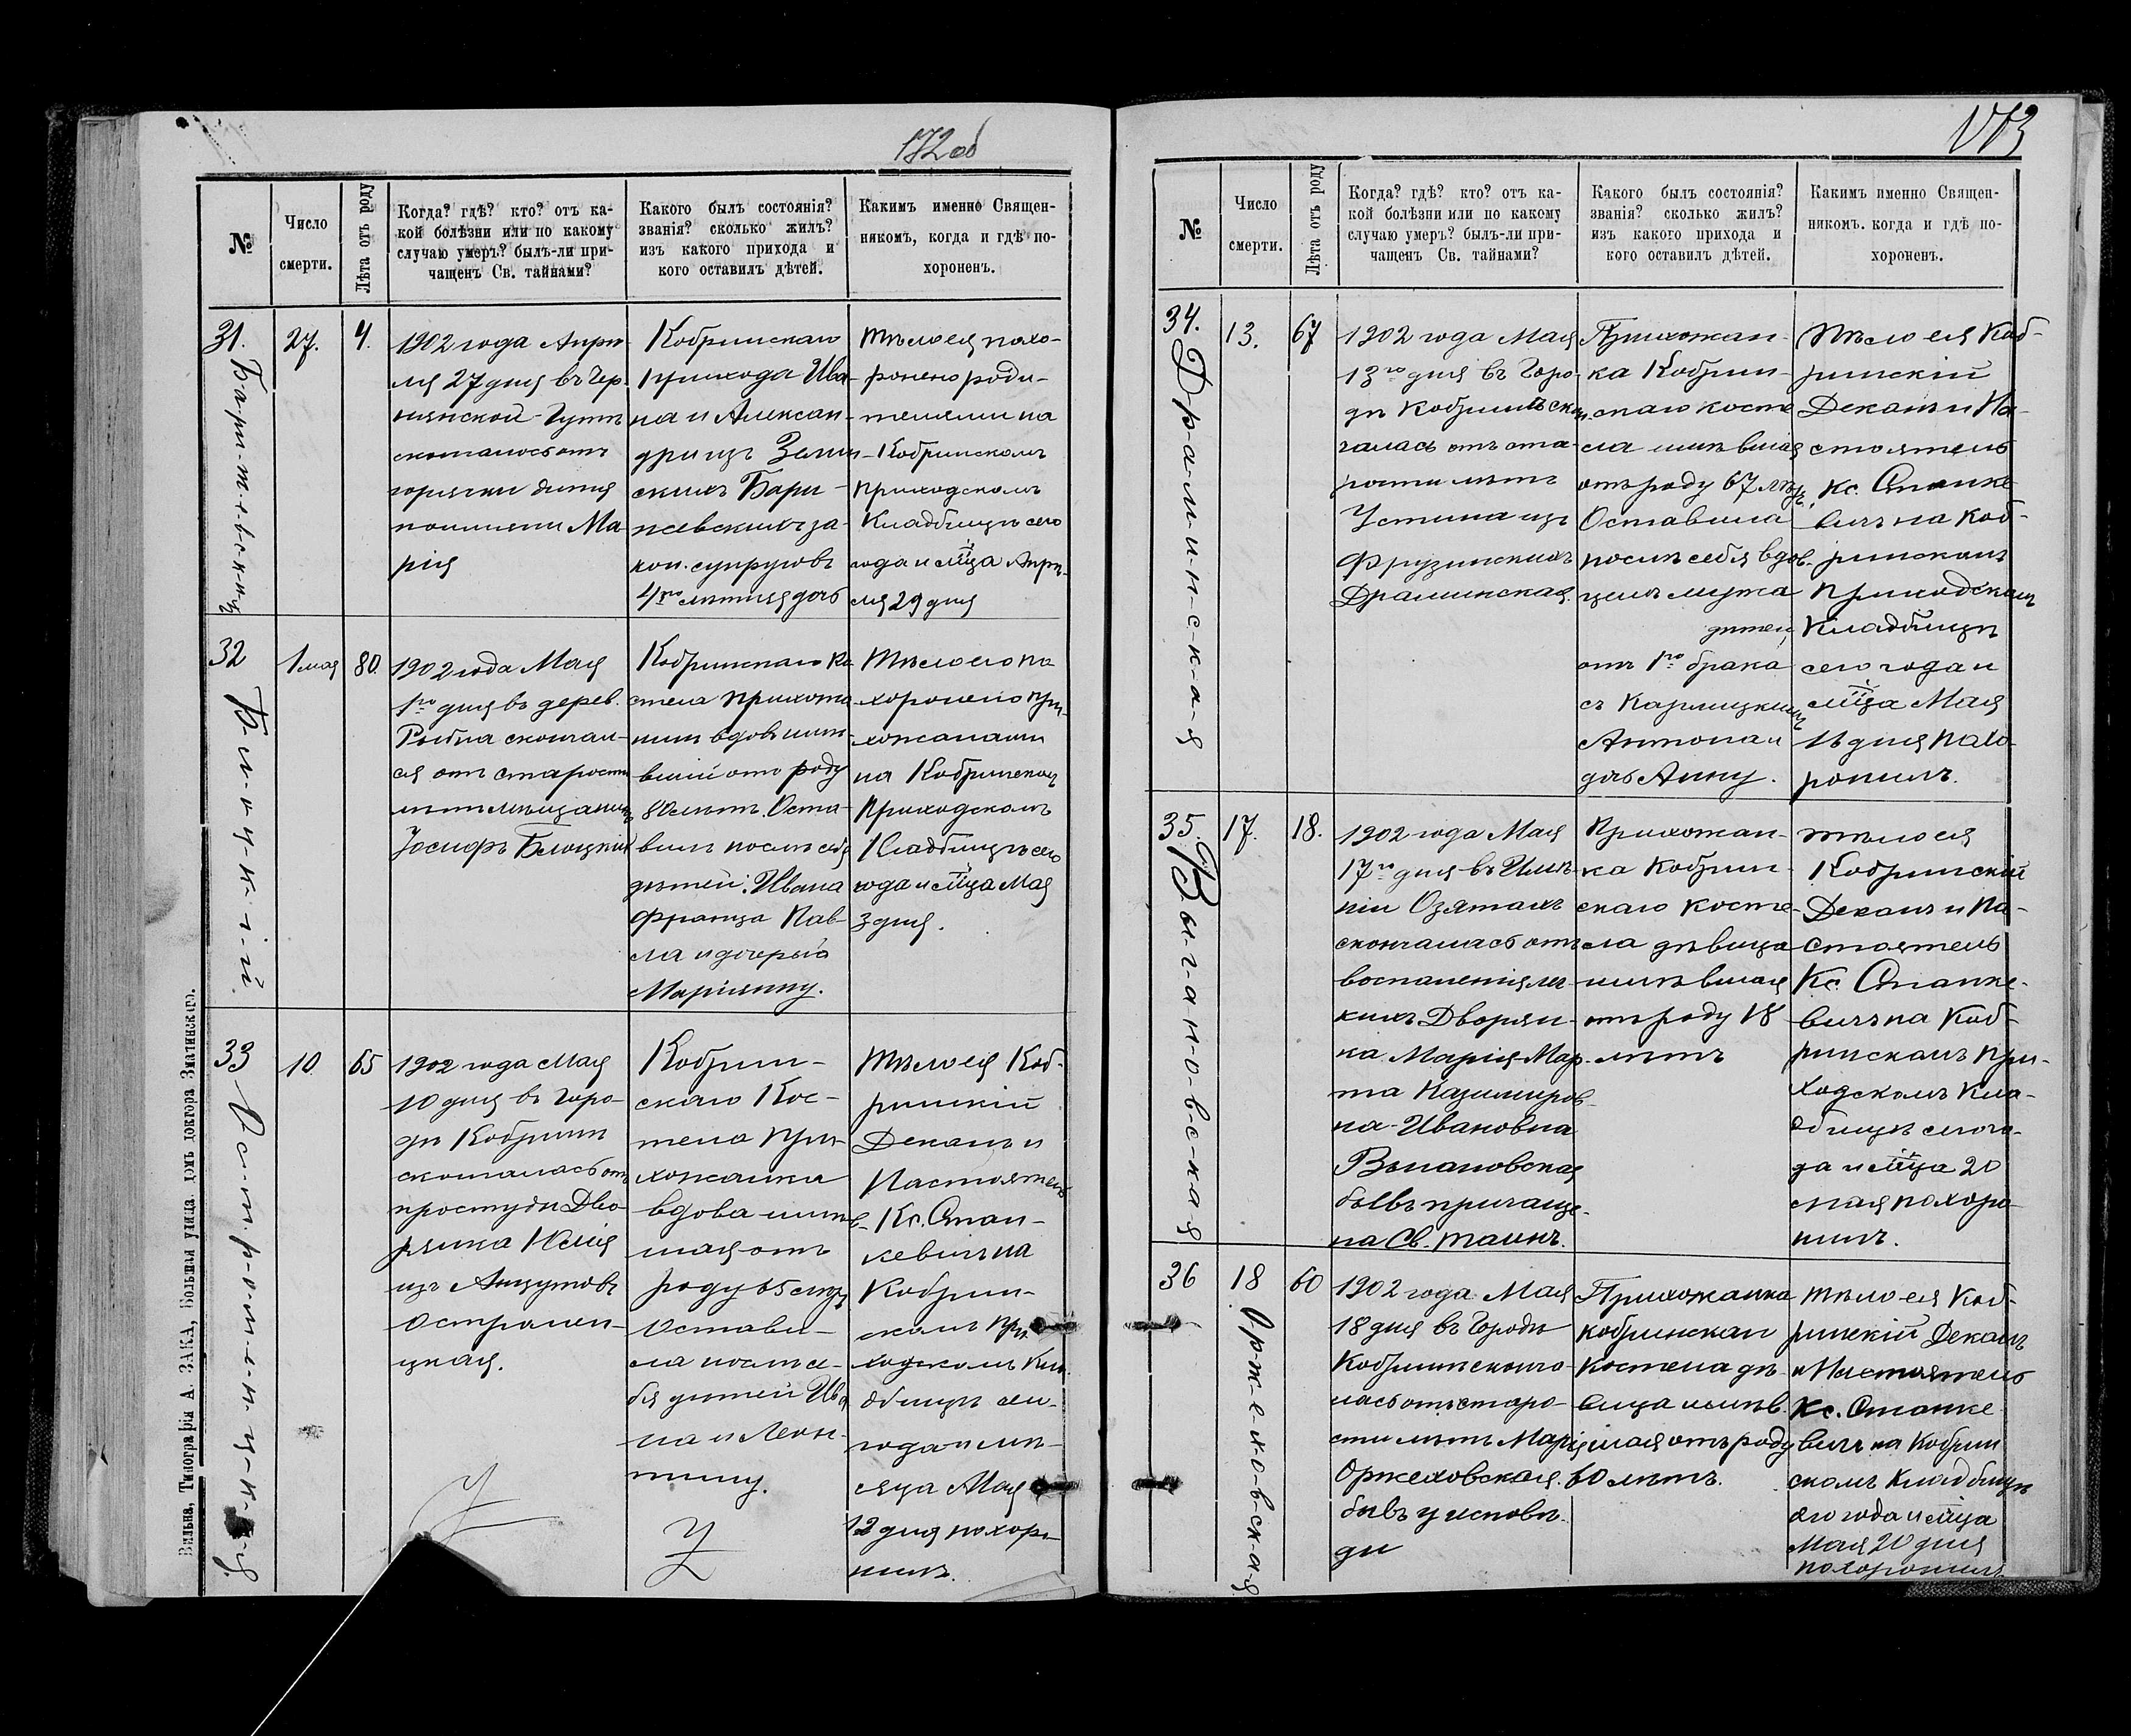 172 об
№
Число
смерти.
Лѣта отъ роду
Когда? гдѣ? кто? отъ ка-
кой болѣзни или по какому
случаю умеръ? былъ-ли при-
чащенъ Св. тайнами?
Какого былъ состоянія?
званія? сколько жилъ?
изъ какого прихода и
кого оставилъ дѣтей.
Какимъ именно Священ-
никомъ, когда и гдѣ по-
хороненъ.
31.
27.
4.
1902 года Апрѣ-
ля 27 дня въ Чер-
нянской Гутѣ
скончалось отъ
горячки дитя
по имени Ма-
рія
Кобринскаго
прихода Ива-
на и Алексан-
дри изъ
скихъ Бари-
севскихъ за-
кон. супруговъ
4хъ лѣтняя дочь
Тѣло ея похо-
ронено роди-
телями на
Кобринскомъ
приходскомъ
Кладбищѣ сего
года и м̃ца Апрѣ-
ля 29 дня
32
Б-ѣ-л-о-ц-к-і-й.
1 мая
80.
1902 года Мая
1го дня въ дерев.
Рыбна скончал-
ся отъ старости
лѣтъ мѣщанинъ
Іосифъ Бѣлоцкій
Кобринскаго ко-
стела прихожа-
нинъ вдовъ имѣ-
вшій отъ роду
80 лѣтъ. Оста-
вилъ послѣ себя
дѣтей: Ивана
Франца Пав-
ла и дочерью
Маріянну.
Тѣло его по-
хоронено при-
хожанами
на Кобринскомъ
Приходскомъ
Кладбищѣ сего
года и м̃ца Мая
3 дня.
33
О-с-т-р-о-м-е-н-ц-к-а-я.
10
65
1902 года Мая
10 дня въ горо-
дѣ Кобринѣ
скончалась отъ
простуды Дво-
рянка Юлія
изъ Анцутовъ
Остромен-
цкая.
Кобрин-
скаго Кос-
тела при-
хожанка
вдова имѣв-
шая отъ
роду 65 лѣтъ
Остави-
ла послѣ се-
бя дѣтей Ива-
на и Леон-
тину.
Тѣло ея Коб-
ринскій
Деканъ и
Настоятель
Кс. Стан-
кевичъ на
Кобрин-
скомъ при-
ходскомъ кла-
дбищѣ сего
года и мѣ-
сяца Мая
12 дня похоро-
нилъ.
Вильна, Типографія А. ЗАКА, Большая улица домъ доктора Знатинскаго.
173
№
Число
смерти.
Лѣта отъ роду
Когда? гдѣ? кто? отъ ка-
кой болѣзни или по какому
случаю умеръ? былъ-ли при-
чащенъ Св. тайнами?
Какого былъ состоянія?
званія? сколько жилъ?
изъ какого прихода и
кого оставилъ дѣтей.
Какимъ именно Священ-
никомъ. когда и гдѣ по-
хороненъ.
34.
Д-р-а-л-и-н-с-к-а-я
13.
67
1902 года Мая
13го дня въ Горо-
дѣ Кобринѣ скон-
чалась отъ ста-
рости лѣтъ
Устина изъ
Фрузинскихъ
Дралинская.
Прихожан-
ка Кобрин-
скаго косте-
ла имѣвшая
отъ роду 67 лѣтъ.
Оставила
послѣ себя вдов-
цемъ мужа
дѣтей
отъ 1го брака
съ Карлицкимъ
Антона и
дочь Анну.
Тѣло ея Коб-
ринскій
Деканъ и На-
стоятель
Кс. Станке-
вичъ на Коб-
ринскомъ
Приходскомъ
Кладбищѣ
сего года и
м̃ца Мая
15 дня похо-
ронилъ.
35.
В-ы-г-а-н-о-в-с-к-а-я
17.
18.
1902 года Мая
17го дня въ Имѣ-
ніи Озятахъ
скончалась отъ
воспаленія лег-
кихъ Дворян-
ка Марія-Мар-
та Казимиров-
на-Ивановна
Выгановская
бывъ причаще-
на Св. таинъ.
Прихожан-
ка Кобрин-
скаго косте-
ла дѣвица
имѣвшая
отъ роду 18
лѣтъ
тѣло ея
Кобринскій
Деканъ и На-
стоятель
Кс. Станке-
вичъ на Коб-
ринскомъ при-
ходскомъ кла-
дбищѣ сего го-
да и м̃ца 20
мая похоро-
нилъ.
36
О-р-ж-е-х-о-в-с-к-а-я
18
60
1902 года Мая
18 дня въ Городѣ
Кобринѣ сконча-
лась отъ старо-
сти лѣтъ Марія
Оржеховская.
бывъ у исповѣ-
ди
Прихожанка
кобринскаго
Костела дѣ-
вица имѣв-
шая отъ роду
60 лѣтъ.
Тѣло ея Коб-
ринскій Деканъ
и Настоятель
Кс. Станке-
вичъ на Кобрин-
скомъ Кладбищѣ
его года и м̃ца
Мая 20 дня
похоронилъ